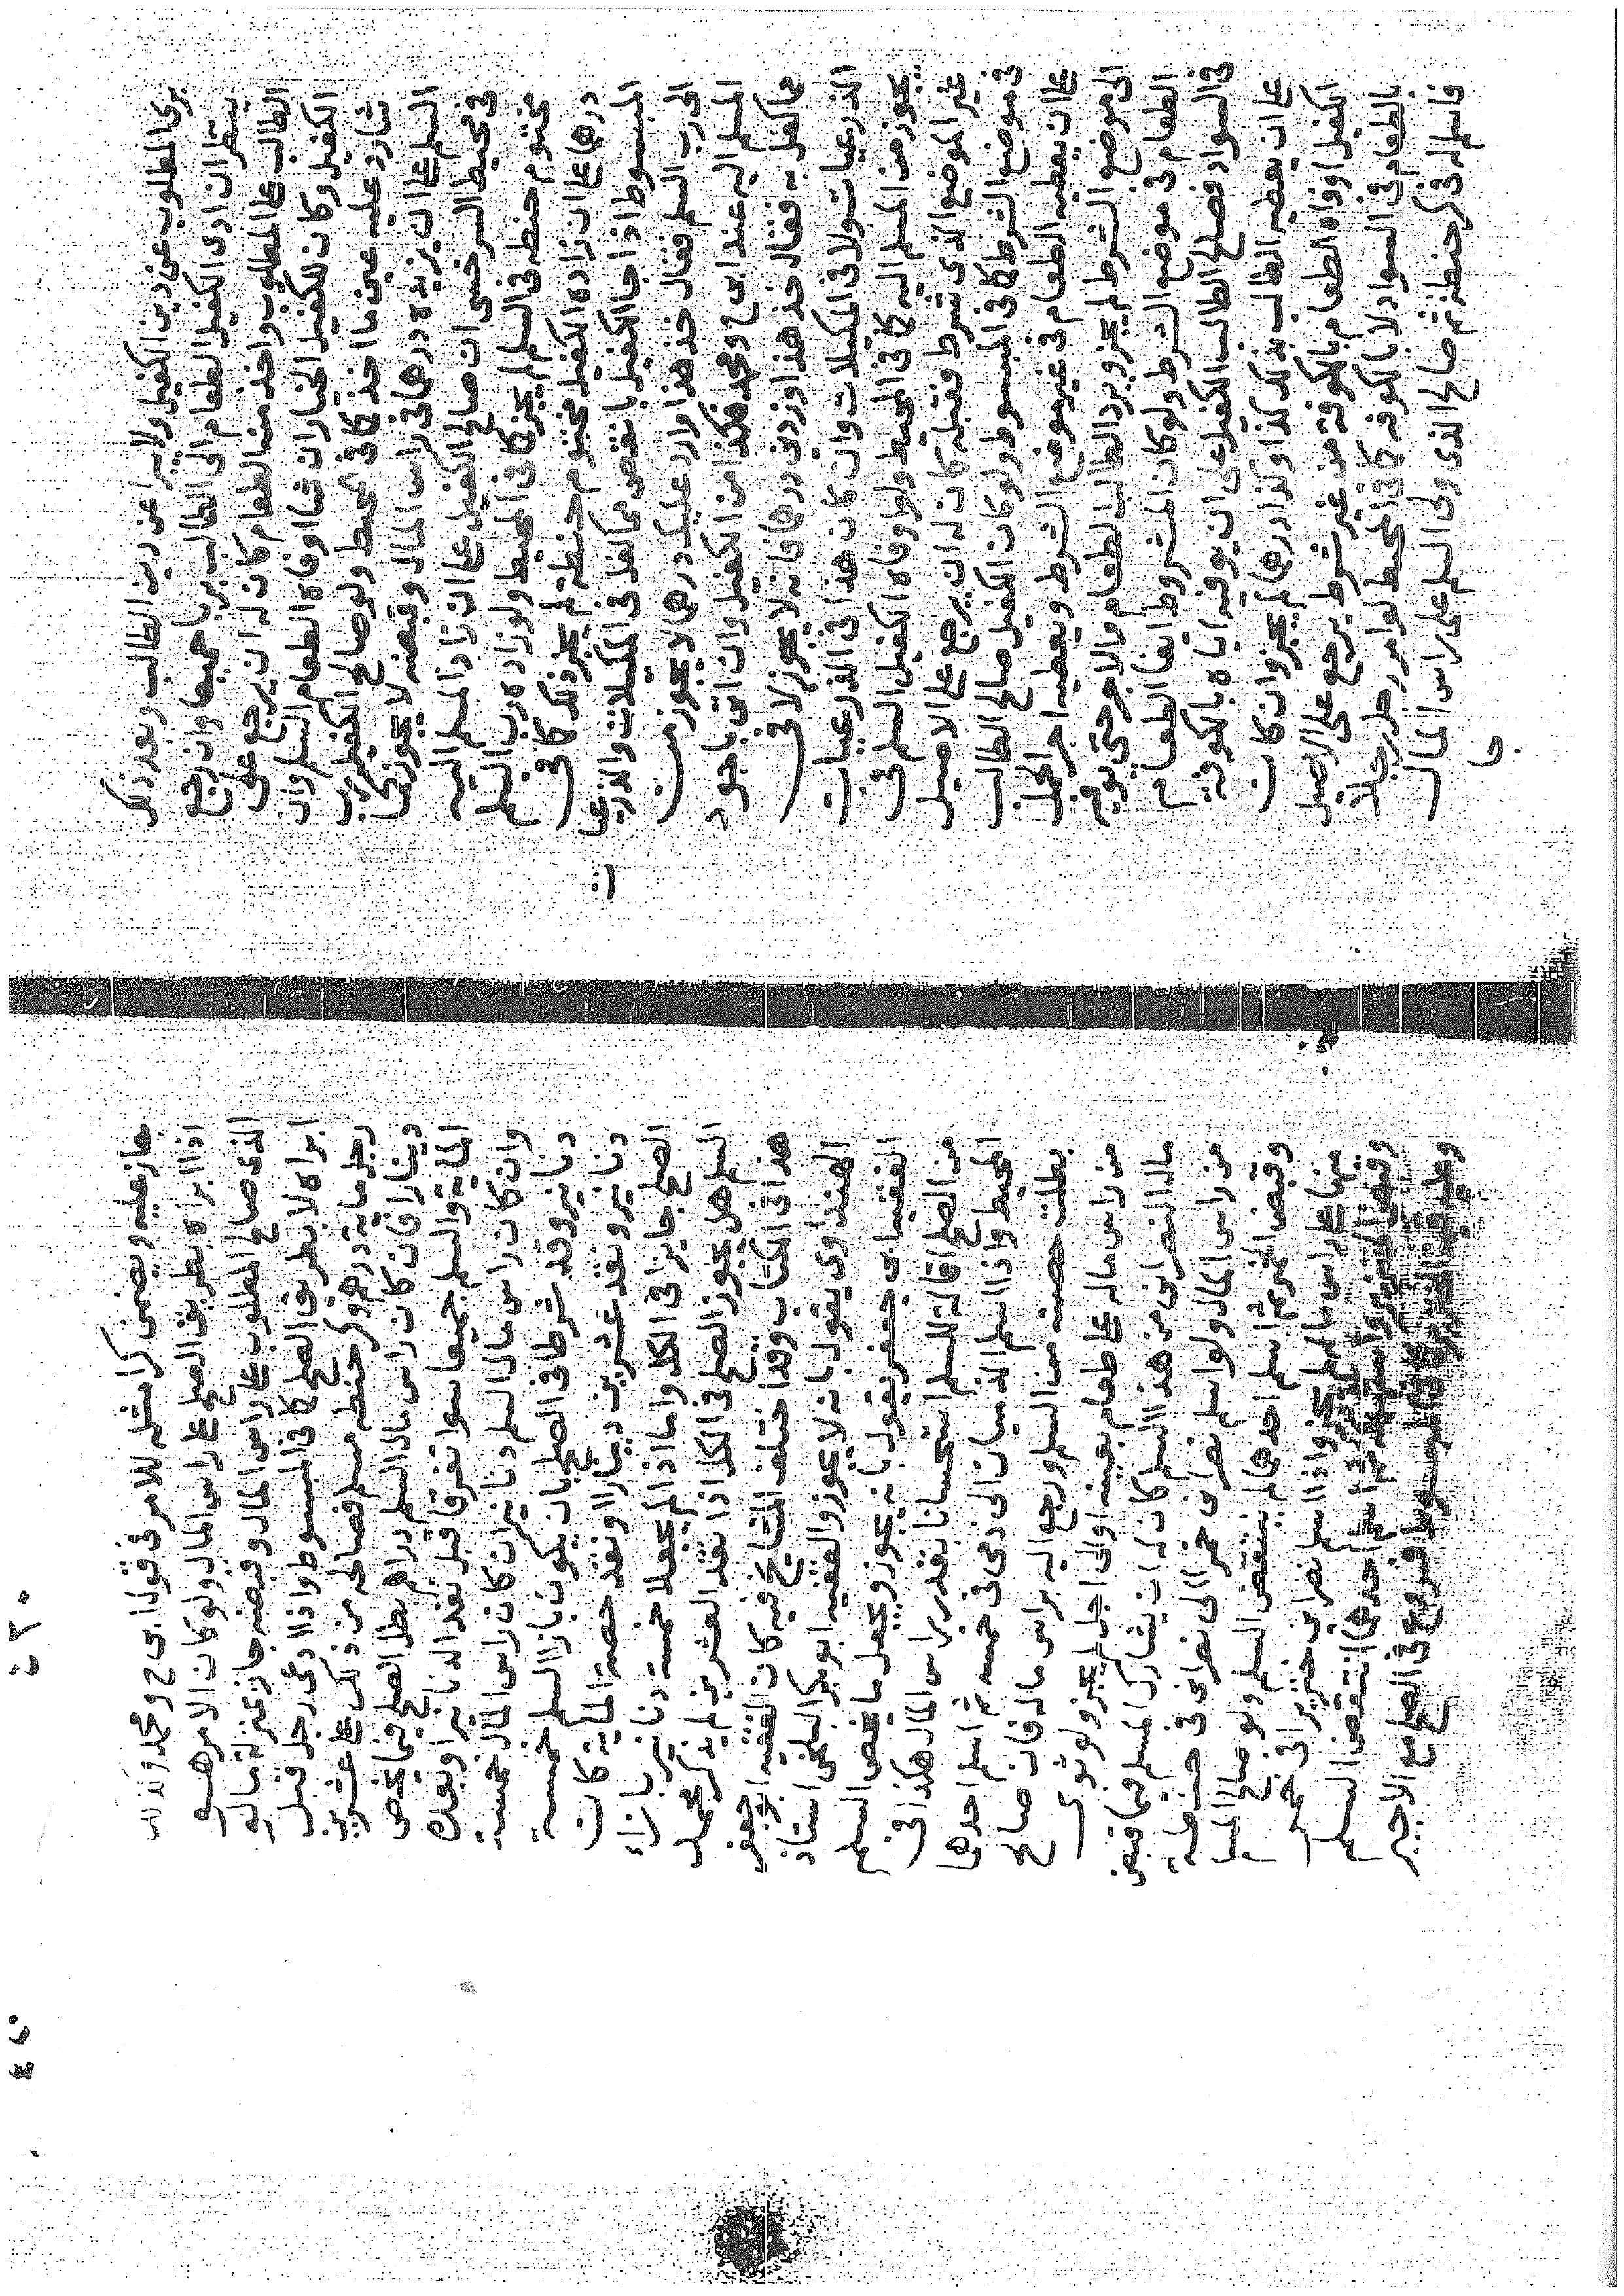 برى المطلوب عن دين الكفيل ولا يبرا عن دين الطالب وبعد ذلك
ينتظر ان ادى الكفيل الطعام الى الطالب بريا جميعا وان رجع
الطالب على المطلوب واخذ منه الطعام كان له ان يرجع على
الكفيل وكان للكفيل الخيار ان شا اوفاه الطعام السلم وان
شا رد عليه عين ما اخذ كما فى المحيط ولو صالح الكفيل رب
السلم على ان يزيده درهما فى راس المال وقبضه لا يجوز كما
فى محيط السرخسى ان صالح الكفيل على ان زاد المسلم اليه
مختوم حنطه فى السلم لم يجز كما فى المحيط ولو زاده رب السلم
درهما على ان زاده الكفيل مختوم حنطة لم يجز ذلك كما فى
المبسوط اذا جا الكفيل بانقص مما كفل فى المكيلات والذرعيا
ت
الى رب السلم فقال خذ هذا وارد عليك درهما لا يجوز من
المسلم اليه عند ابى ح ومحمد فكذا من الكفيل وان اتى باجود
مما كفل به فقال خذ هذا وزدنى درهما فانه لا يجوز لا فى
الذرعيات ولا فى المكيلات وان كان هذا فى الذرعيات
يجوز من المسلم اليه كما فى المحيط ولو اوفاه الكفيل السلم فى
غير الموضع الذى شرط فقبله كان له ان يرجع على الاصيل
فى موضع الشرط كما فى المبسوط ولو كان الكفيل صالح الطالب
على ان يعطيه الطعام فى غير موضع الشرط ويعطيه اجر الحمل
الى موضع الشرط لم يجز ويرد الطالب الطعام والاجر حتى يوفيه
الطعام فى موضع الشرط ولو كان المشروط ايفا الطعام
فى السواد فصالح الطالب الكفيل على ان يوفيه اياه بالكوفة
على ان يعطيه الطالب بذلك كذا وكذا درهما لم يجز وان كان
الكفيل اوفاه الطعام بالكوفة من غير شرط يرجع على الاصيل
بالطعام فى السواد لا بالكوفه كما فى المحيط لو امر رجل رجلا
فاسلم له فى كر حنطة ثم صالح الذى ولى السلم على راس المال
جا
جاز عليه ويضمن كرا مثله للامر فى قول ابى ح ومحمد وكذلك
اذا ابراه بطريق الصلح على راس المال ولو كان الامر هو
الذى صالح المطلوب على راس المال وقبضه جاز بمنزلة ماله
ابراه لا بطريق الصلح كما فى المبسوط واذا ادعى رجل قبل
رجل ماية درهم وكر حنطه مسلم فصالحه من ذلك على عشرين
دينارا فان كان راس مال السلم دراهم بطل الصلح فيما يخص
الماية والسلم جميعا سوا تفرقا قبل نقد الدنانير او بعده
وان كان راس مال السلم دنانير ان كان راس المال خمسة
دنانير وقد شرطا فى الصلح بان يكون بازا السلم خمسة
دنانير ونقد عشرين دينارا او نقد حصة الماية كان
الصلح جايزا فى الكل واما اذا لم يجعلا خمسة دنانير بازاء
السلم هل يجوز الصلح فى الكل اذا نقد العشرين لم يذكر محمد
هذا فى الكتاب وقد اختلف المشايخ فيه كان الفقيه ابو جعفر
الهنداوى يقول بانه لا يجوز والفقيه ابو بكر البلخى استاذ
الفقيه ابى جعفر يقول بانه يجوز ويجعل ما يخص السلم
من الصلح اقالة للسلم استحسانا بقدر راس المال هكذا فى
المحيط واذا اسلم الذميان الى ذمى فى خمر ثم اسلم احدهما
بطلت حصته من السلم ورجع اليه براس ماله فان صالح
من راس ماله على طعام بعينه او الى اجل لم يجز ولو توى
مال النصرانى من هذا السلم كان له ان يشارك المسلم فيما قبض
من راس المال ولو اسلم نصرانى خمرا الى نصرانى فى حنطة
وقبض الخمر ثم اسلم احدهما لم ينتقض السلم ولو صالح المسلم
منها على راس ماله لم يجز واذا اسلم نصرانى خنزيرا فى خمر
وقبض الخنزير واستهلكه ثم اسلم احدهما انتقض السلم
وعليه قيمة الخنزير كما فى المبسوط فروع فى الصلح مع الاجير